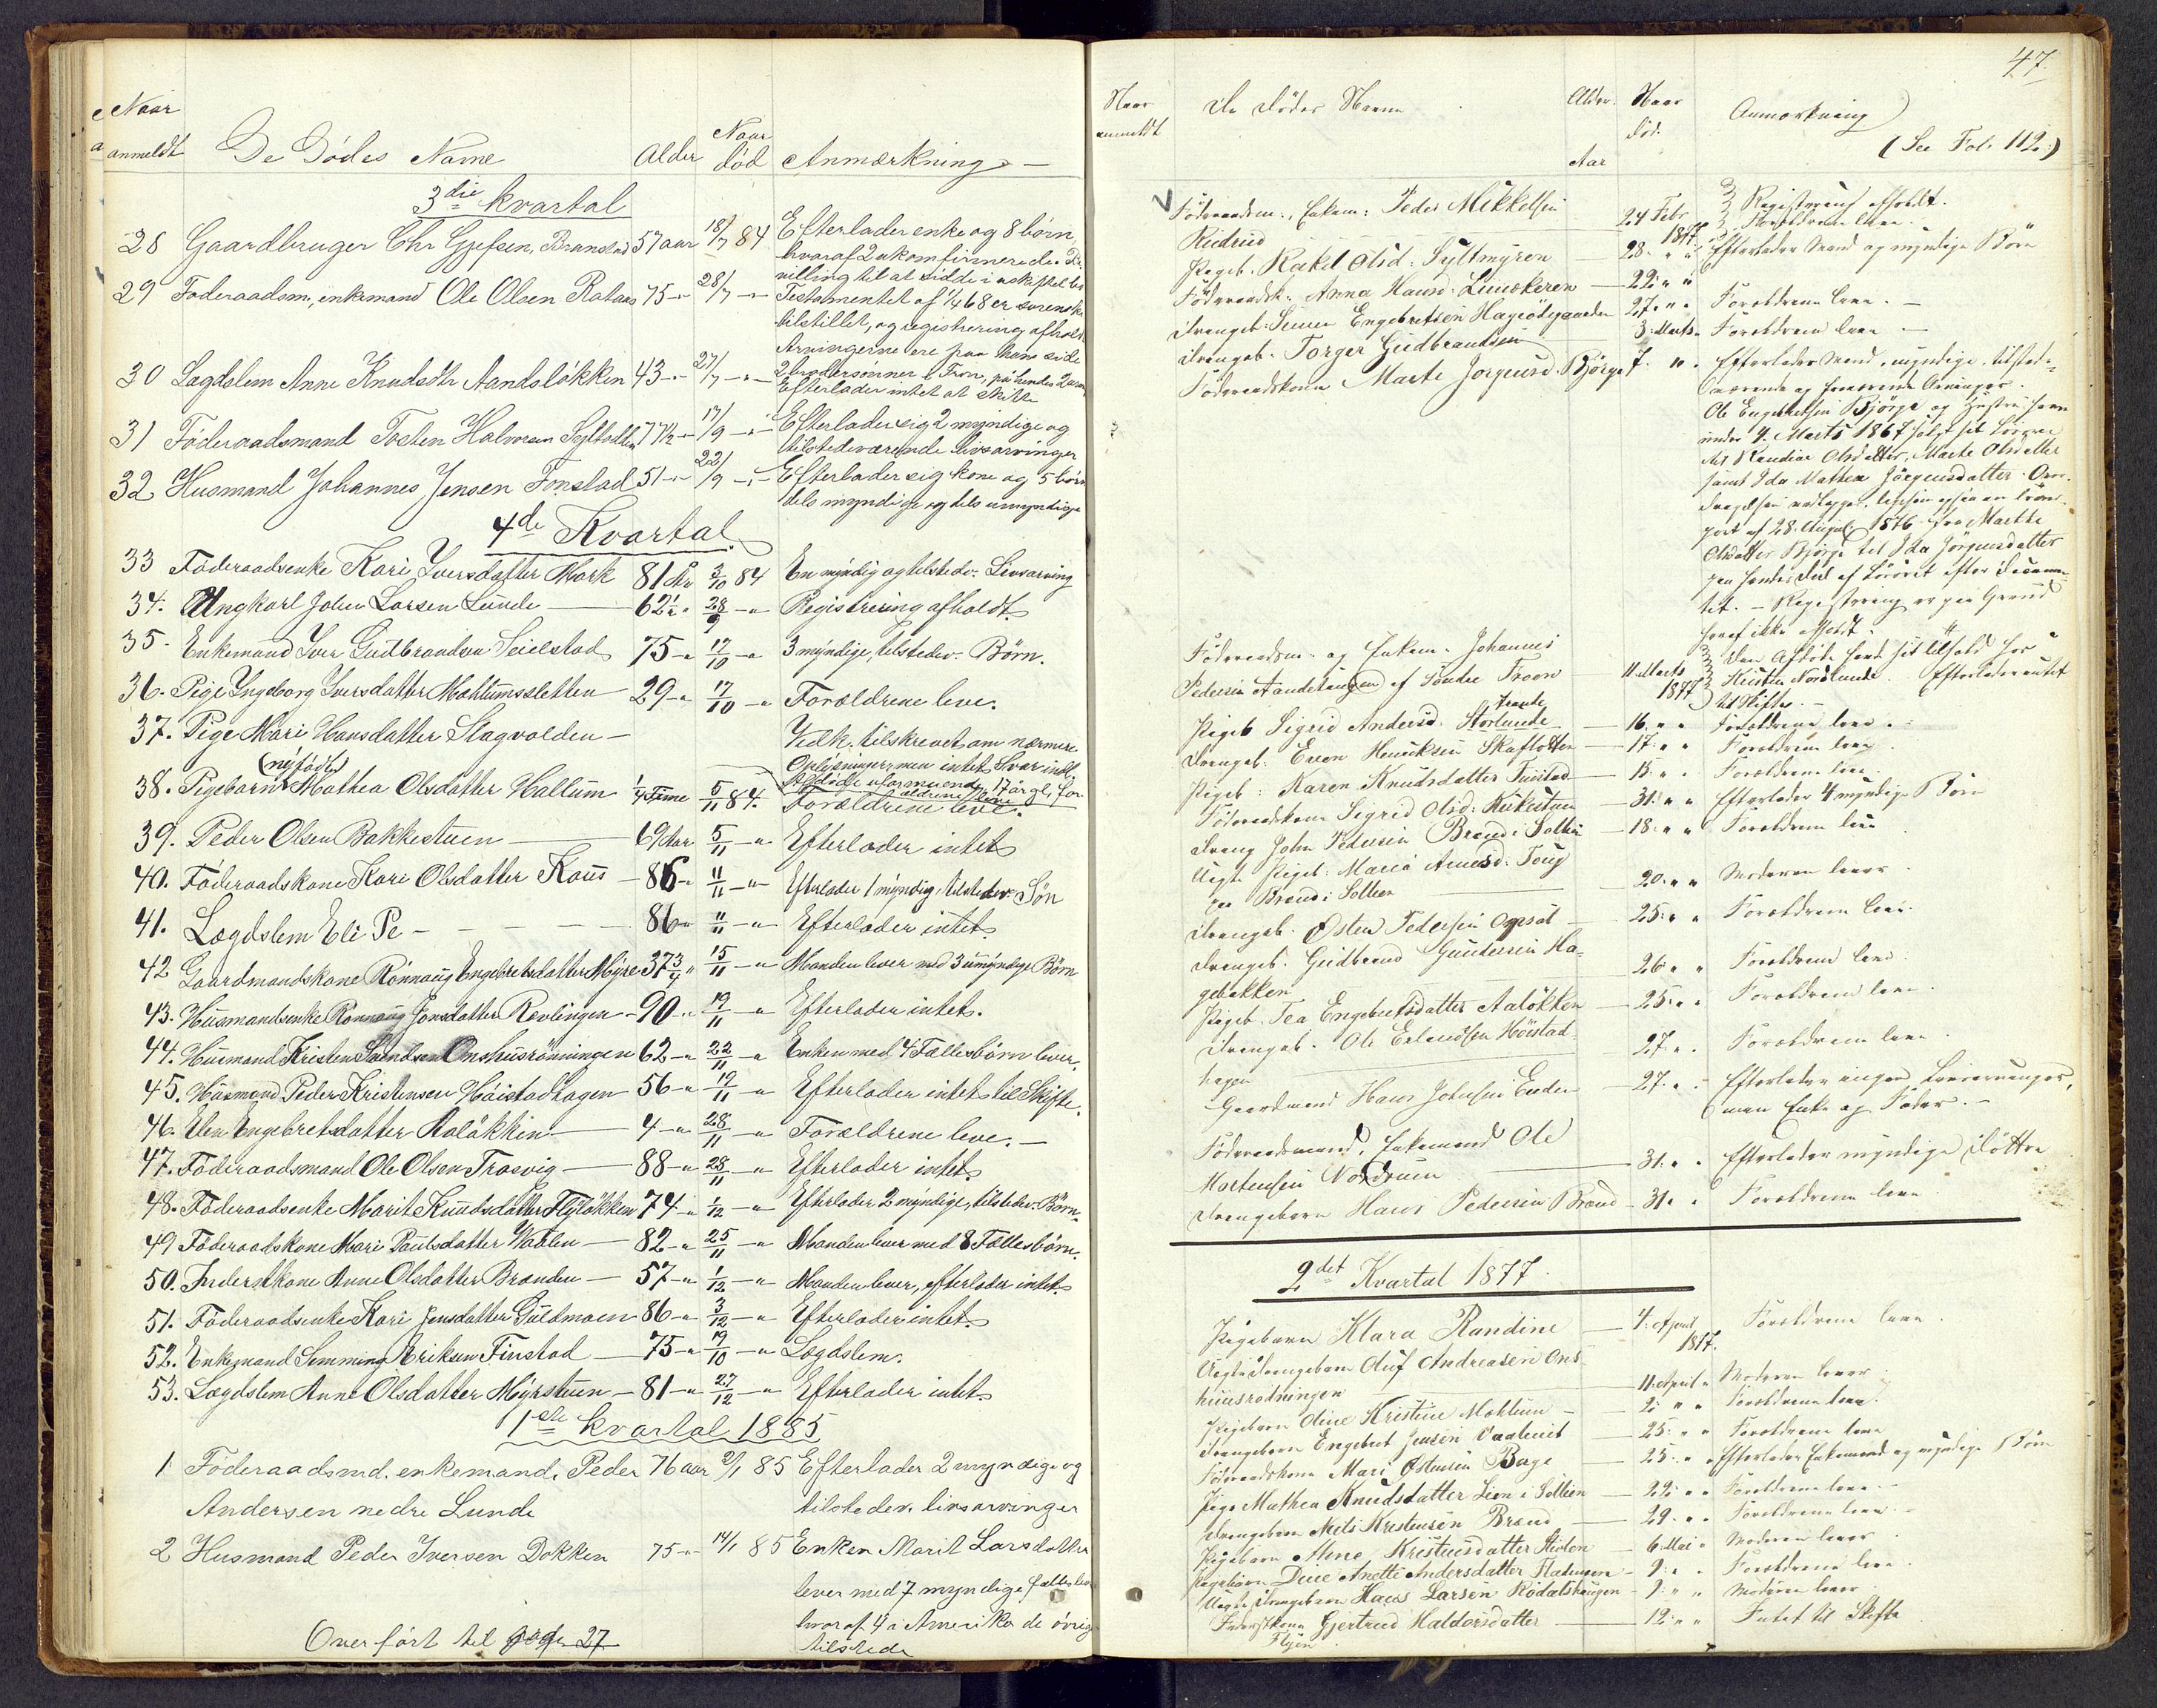 Naar
anmeldt De Dødes Name Alder Naar død Anmærkning
3die kvartal
28 Gaardbruger Chr Gjefsen, Branstad 57 aar 18/7 84 Efterlader enke og 8 börn,
hvoraf 2 ukomfirmerede.
villing til at sidde i uskiftet bo
29 Föderaadsm., enkemand Ole Olsen Rataas 75 -"- 28/7 -"- Testamentet af 1/4 68 er
tilstillet, og registrering afholdt
Arvingerne ere paa hans side
30 Lægdslem Anne Knudsdtr Aandslökken 43 -"- 27/7 -"- 2 brodersönner i Fron, på hendes
Efterlader intet at skifte
31 Föderaadsmand Tosten Halvorsen 77½ -"- 17/9 -"- Efterlader sig 2 myndige og
tilstedeværende livsarvinger
32 Husmand Johannes Jensen Fonstad 51 -"- 22/9 -"- Efterlader sig kone og 5 börn
dels myndige og dels umyndige
4de Kvartal
33 Föderaadsenke Kari Iversdatter Mork 81 Ar 3/10 84 En myndig og tilstedev. Livsarving
34. Ungkarl Johan Larsen Lunde 62½ " 28/9 -"- Registrering afholdt.
35. Enkemand Iver Gudbrandsen Seielstad 75 -"- 17/10 -"- 3 myndige, tilstedev. Börn.
36. Pige Ingeborg Iversdatter Mæhlumssletten 29 -"- 17/10 -"- Forældrene leve.
37. Pige Mari Hansdatter Slagvolden - Vedk. tilskrevet om nærmere
Oplysninger, men intet Svar indl.
Afdöde uformuende, 17 år gl, forældrene leve.
38. Pigebarn (nyfödt) Mathea Olsdatter Hallum ¼ Time 5/11 84. Forældrene leve.
39. Peder Olsen Bakkestuen 69 Aar 5/11 -"- Efterlader intet
40. Föderaadskone Kari Olsdatter Kaus 86 -"- 11/11 -"- Efterlader 1 myndig, tilstedev. Sön
41. Lægdslem Eli Pe - - - - - 86 -"- 11/11 -"- Efterlader intet.
42 Gaardmandskone Rönnaug Engebretsdatter Myre 37¾ " 15/11 -"- Manden lever med 3 umyndige Börn
43. Husmandsenke Ronnaug Jonsdatter Revlingen 90 -"- 19/11 -"- Efterlader intet.
44. Husmand Kristen Onshusrönningen 62 -"- 22/11 -"- Enken med 4 Fællesbörn lever.
45. Husmand Peder Kristensen Höistadhagen 56 -"- 19/11 -"- Efterlader intet til Skifte.
46. Elen Engebretsdatter Aalökken 4 -"- 28/11 -"- Forældrene leve. -
47. Föderaadsmand Ole Olsen Trosvig 88 -"- 28/11 -"- Efterlader intet.
48. Föderaadsenke Marit Knudsdatter Flyløkken 74 -"- 1/12 -"- Efterlader 2 myndige, tilstedev. Börn.
49 Föderaadskone Mari Paulsdatter Vaalen 82 -"- 25/11 -"- Manden lever med 8 Fællesbörn.
50. Inderstkone Anne Olsdatter Branden 57 -"- 1/12 -"- Manden lever, efterlader intet.
51. Föderaadsenke Kari Jensdatter Guldmoen 86 -"- 3/12 -"- Efterlader intet.
52. Enkemand Simming Eriksen Finstad 75 -"- 19/10 -"- Lægdslem.
53. Lægdslem Anne Olsdatter Myrstuen 81 -"- 27/12 -"- Efterlader intet.
1ste kvartal 1885
1 Föderaadsmd. enkemand, Peder 76 aar 2/1 85 Efterlader 2 myndige og
Andersen nedre Lunde tilstedev. livsarvinger
2 Husmand Peder Iversen Dokken 75 -"- 14/1 85 Enken Marit Larsdatter
lever med 7 myndige fælles
hvoraf 4 i Amerika de övrige
tilstede
Overfört til page 27
47.
Naar
anmeldt De Dödes Navne Alder. Aar Naar død. Anmærkning
(See Fol. 112.)
Föderaadsm., Enkem: Peder Mikkelsen
Rudrud 24 Febr 1877 Registrering afholdt.
Pigeb. Rakel Olsd. Syltmyren 28 " " Forældrene leve.
Föderaadsk. Anna Hansd. 22 " " Efterlader Mand og myndige Börn
Drengeb. Simen Engebretsen Hageödegaarden 27 " " Forældrene leve. -
Drengeb. Torger Gudbrandsen 3 Marts " Forældrene leve -
Föderaadskone Marte Jørgensd. Bjørge 7. " " Efterlader Mand, myndige, tilstedeværende
og fraværende Arvinger.
Ole Engebretsen Bjørge og Hustru have
under 4. Marts 1867
Randine Olsdatter, Marte Olsdatter
samt Ida Mathea Jörgensdatter
af 28 August 1876 fra Marthe
Olsdatter Bjørge til Ida Jörgensdatter
paa hendes Deel af Löröret efter
- Registrering er paa Grund
heraf ikke afholdt.
Föderaadsm. og Enkem. Johannes
Pedersen Aandstangen af Søndre Froen 11 Marts 1877 Den Afdöde havde sit tilhold hos
Nordlunde. Efterlader intet
til Skifte. -
Pigeb Sigrid Andersd. Storlunde 16 " " Forældrene leve.
Drengeb. Even Henriksen Skaflotten 17 " " Forældrene leve.
Pigeb: Karen Knudsdatter Fuistad 15 " " Forældrene leve.
Föderaadskone Sigrid Olsd: Kirkestuen 31 " " Efterlader 4 myndige Börn
Dreng John Pedersen Brænd i Sollien 18 " " Forældrene leve
Uegte Pigeb: Maria Arnesd:
paa Brænd i Sollien 20 " " Moderen lever
Drengeb. Østen Pedersen Opsal 25 " " Forældrene leve.
Drengeb. Gudbrand Gundersen Hagebakken 26 " " Forældrene leve.
Pigeb. Tea Engebretsdatter Aalökken 25 " " Forældrene leve.
Drengeb. Ole Erlandsen Höistadhagen 27 " " Forældrene leve.
Gaardmand Hans Johnsen Enden 27 " " Efterlader ingen Livsarvinger,
men Enke og Fader. -
Föderaadsmand, Enkemand Ole
Mortensen Nordrum 31 " " Efterlader myndige Døttre
Drengebarn Hans Pedersen Brænd 31 " " Forældrene leve
2det Kvartal 1877.
Pigebarn Klara Randine 4 April 1877. Forældrene leve.
Uegte Drengebarn Oluf Andreasen Onshuusrødningen 11 April " Moderen lever
Pigebarn Oline Kristine Mæhlum 2 " " Forældrene leve.
Drengebarn Engebret Jensen 25 " " Forældrene leve
Föderaadskone Mari Østensen Bage 25 " " Efterlader Enkemand og myndige Börn
Pige Mathea Knudsdatter Lien i Sollien 22 " " Forældrene leve. -
Drengebarn Nils Kristensen Brænd 29 " " Forældrene leve. -
Pigebarn Anne Kristensdatter 6 Mai " Moderen lever
Pigebarn Dine Anette Andersdatter 9 " " Forældrene leve.
Uegte Drengebarn Hans Larsen Rødalshaugen 9 " " Moderen lever
Inderstkone Gjertrud Haldorsdatter
Flyen 12 " " Intet til Skifte